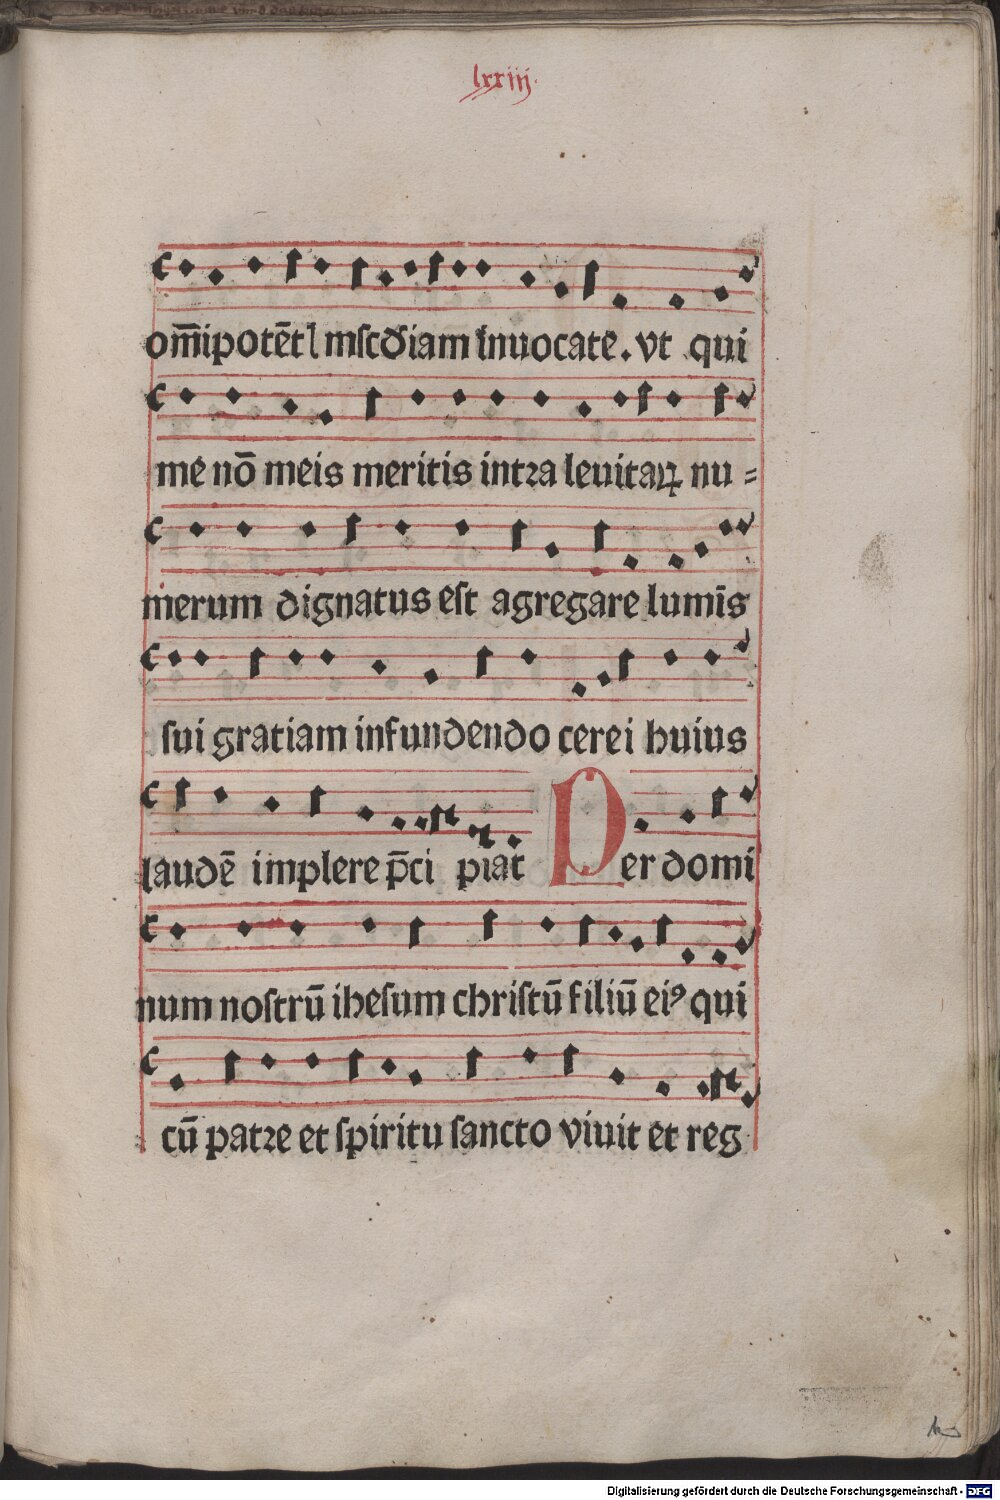 lxxiij.
om̄ipotēt mscðiam inuocate. vt qui
me nō meis meritis intꝛa leuitaꝝ nu =
merum dignatus est agregare lumīs
sui gratiam infundendo cerei huius
laudē implere p̄ci piat Per domi
num nostrū ihesum christū filiū eiꝰ qui
cū patꝛe et spiritu sancto viuit et reg
Digitalisierung gefördert durch die Deutsche Forschungsgemeinschaft - DFG